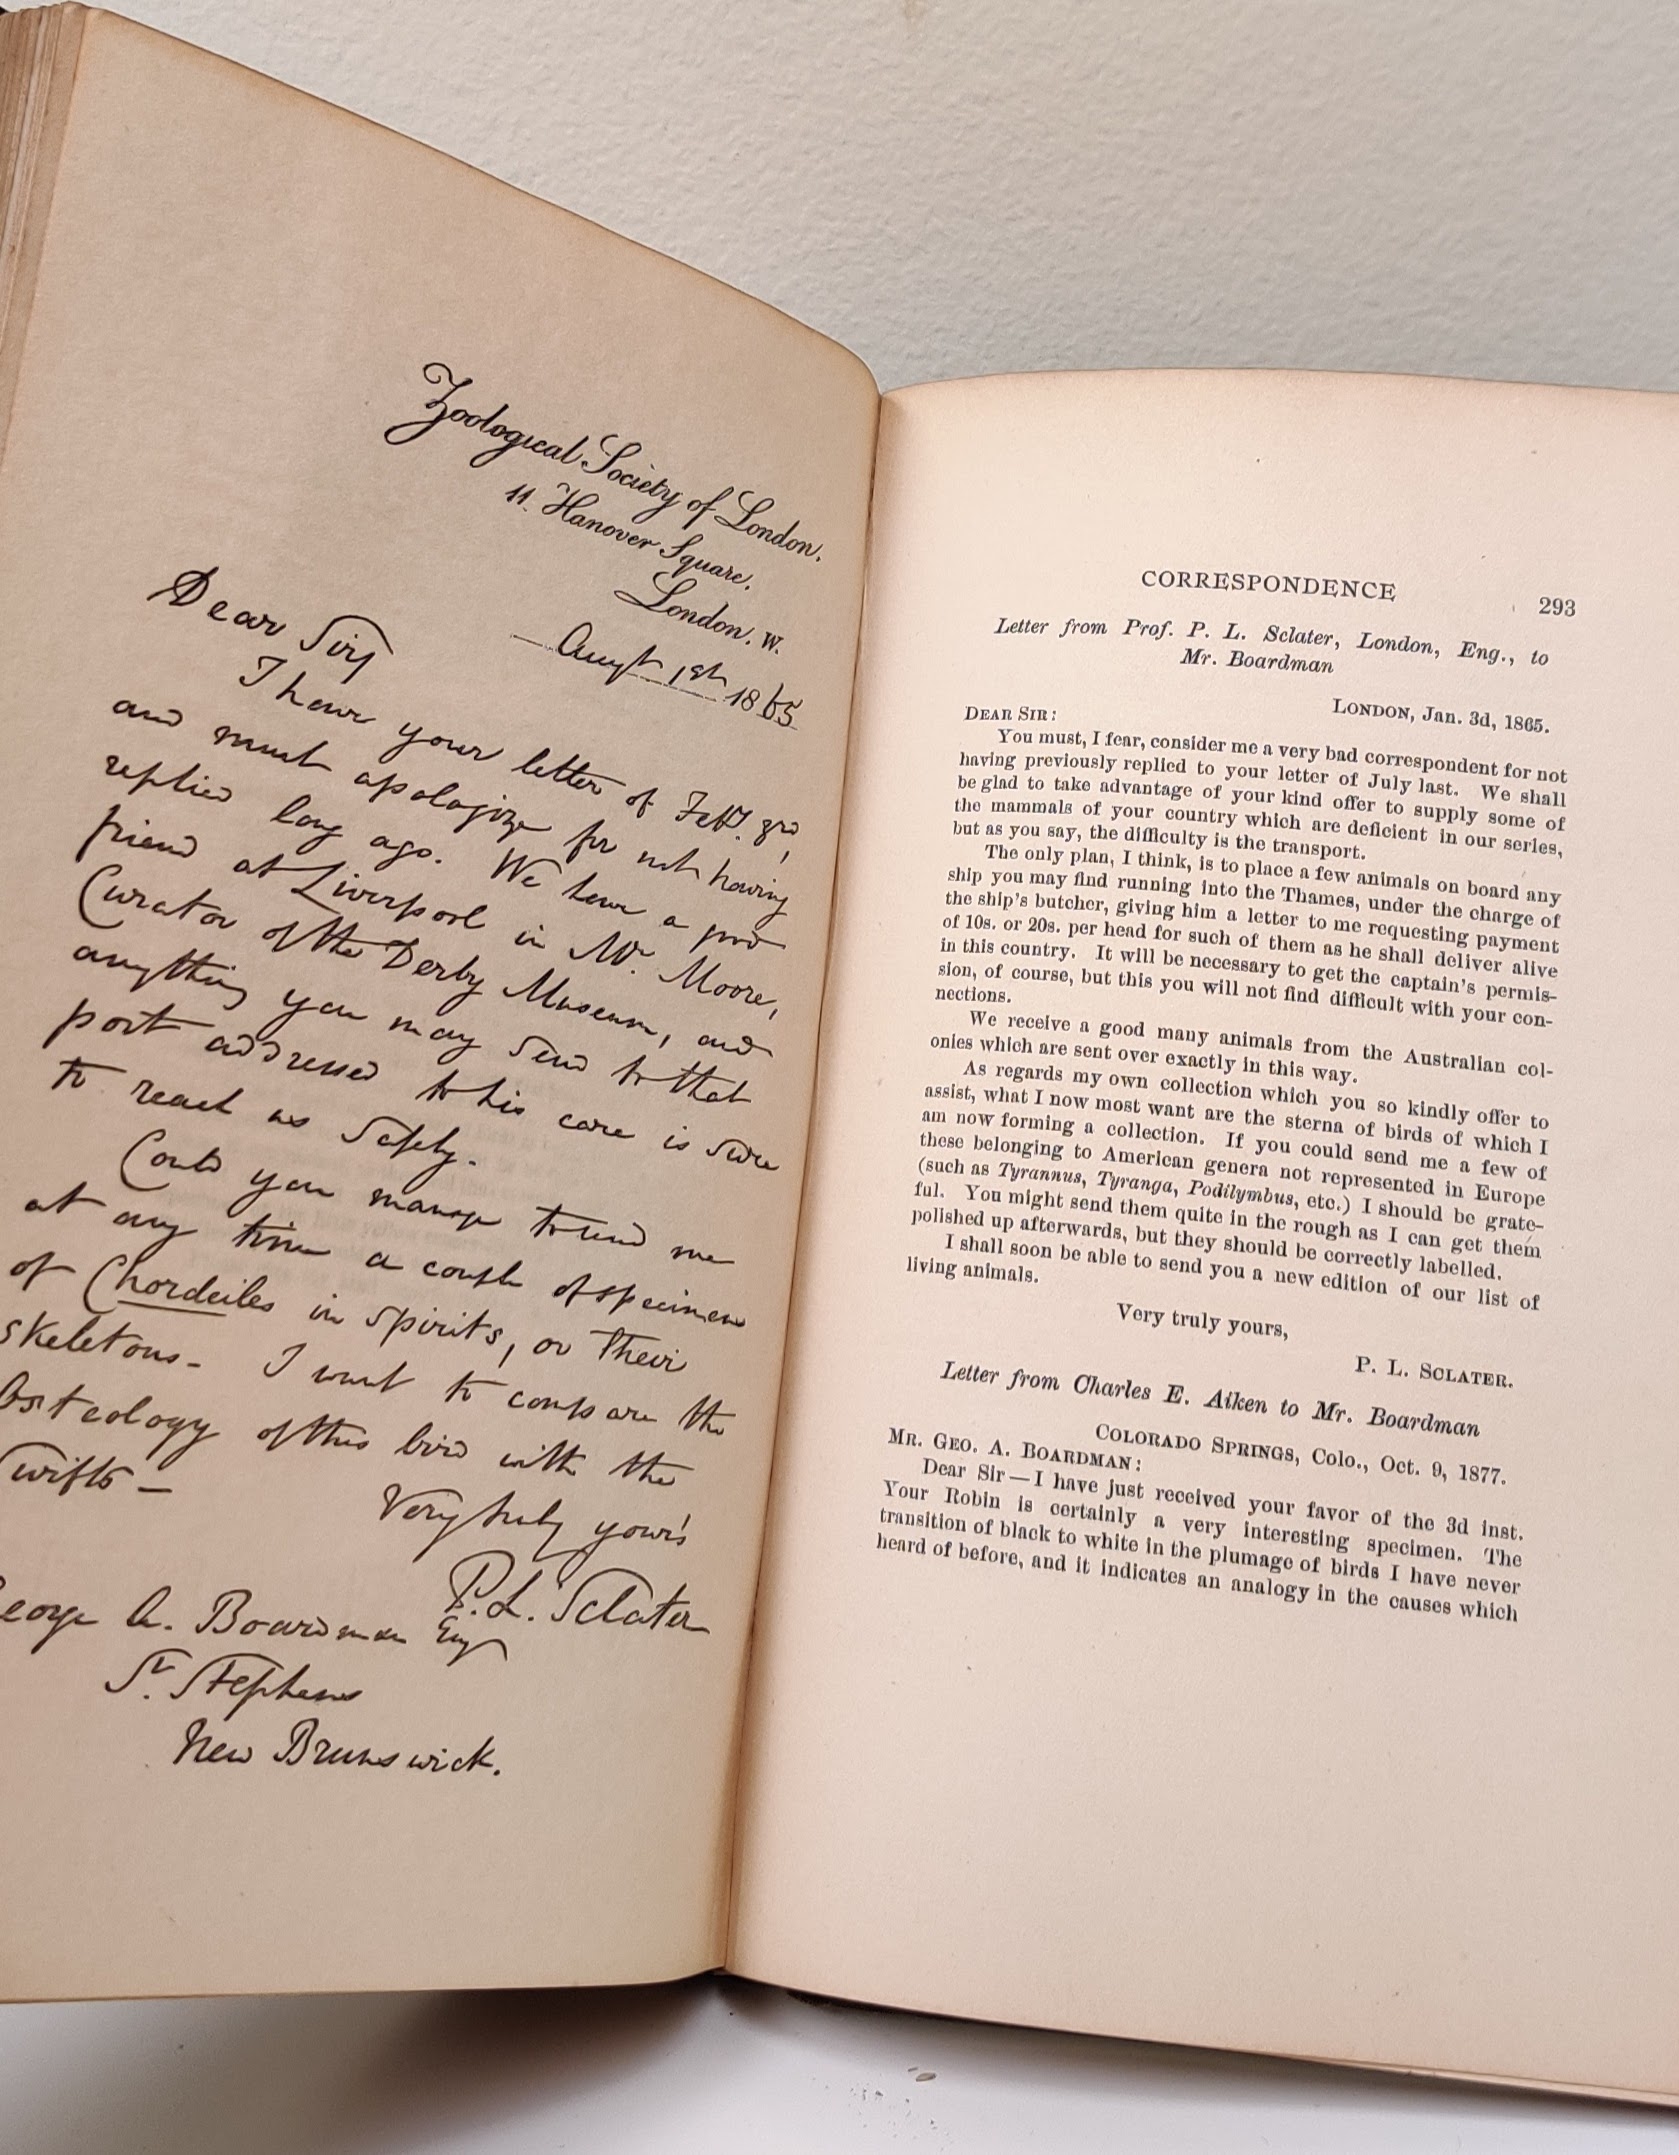 Zoological Society of London.
11. Hanover Square.
London. W.
Augt 1st 1865
Dear Sir,
I have your letter of Feby. 3rd,
and must apologize for not having
replied long ago. We have a good
friend at Liverpool in Mr. Moore,
Curator of the Derby Museum, and
anything you may send to that
port addressed to his care is sure
to reach us safely.
Could you manage to send me
at any time a couple of specimens
of Chordeiles in spirits, or their
skeletons - I want to compare the
Osteology of this bird with the
Swifts -
Very truly yours
P. L. Sclater
George A. Boardman Esq
St. Stephens
New Brunswick.
CORRESPONDENCE 293
Letter from Prof. P. L. Sclater, London, Eng., to
Mr. Boardman
LONDON, Jan. 3d, 1865.
DEAR SIR:
You must, I fear, consider me a very bad correspondent for not
having previously replied to your letter of July last. We shall
be glad to take advantage of your kind offer to supply some of
the mammals of your country which are deficient in our series,
but as you say, the difficulty is the transport.
The only plan, I think, is to place a few animals on board any
ship you may find running into the Thames, under the charge of
the ship's butcher, giving him a letter to me requesting payment
of 10s. or 20s. per head for such of them as he shall deliver alive
in this country. It will be necessary to get the captain's permis-
sion, of course, but this you will not find difficult with your con-
nections.
We receive a good many animals from the Australian col-
onies which are sent over exactly in this way.
As regards my own collection which you so kindly offer to
assist, what I now most want are the sterna of birds of which I
am now forming a collection. If you could send me a few of
these belonging to American genera not represented in Europe
(such as Tyrannus, Tyranga, Podilymbus, etc.) I should be grate-
ful. You might send them quite in the rough as I can get them
polished up afterwards, but they should be correctly labelled.
I shall soon be able to send you a new edition of our list of
living animals.
Very truly yours,
P. L. SCLATER.
Letter from Charles E. Aiken to Mr. Boardman
COLORADO SPRINGS, Colo., Oct. 9, 1877.
MR. GEO. A. BOARDMAN:
Dear Sir—I have just received your favor of the 3d inst.
Your Robin is certainly a very interesting specimen. The
transition of black to white in the plumage of birds I have never
heard of before, and it indicates an analogy in the causes which